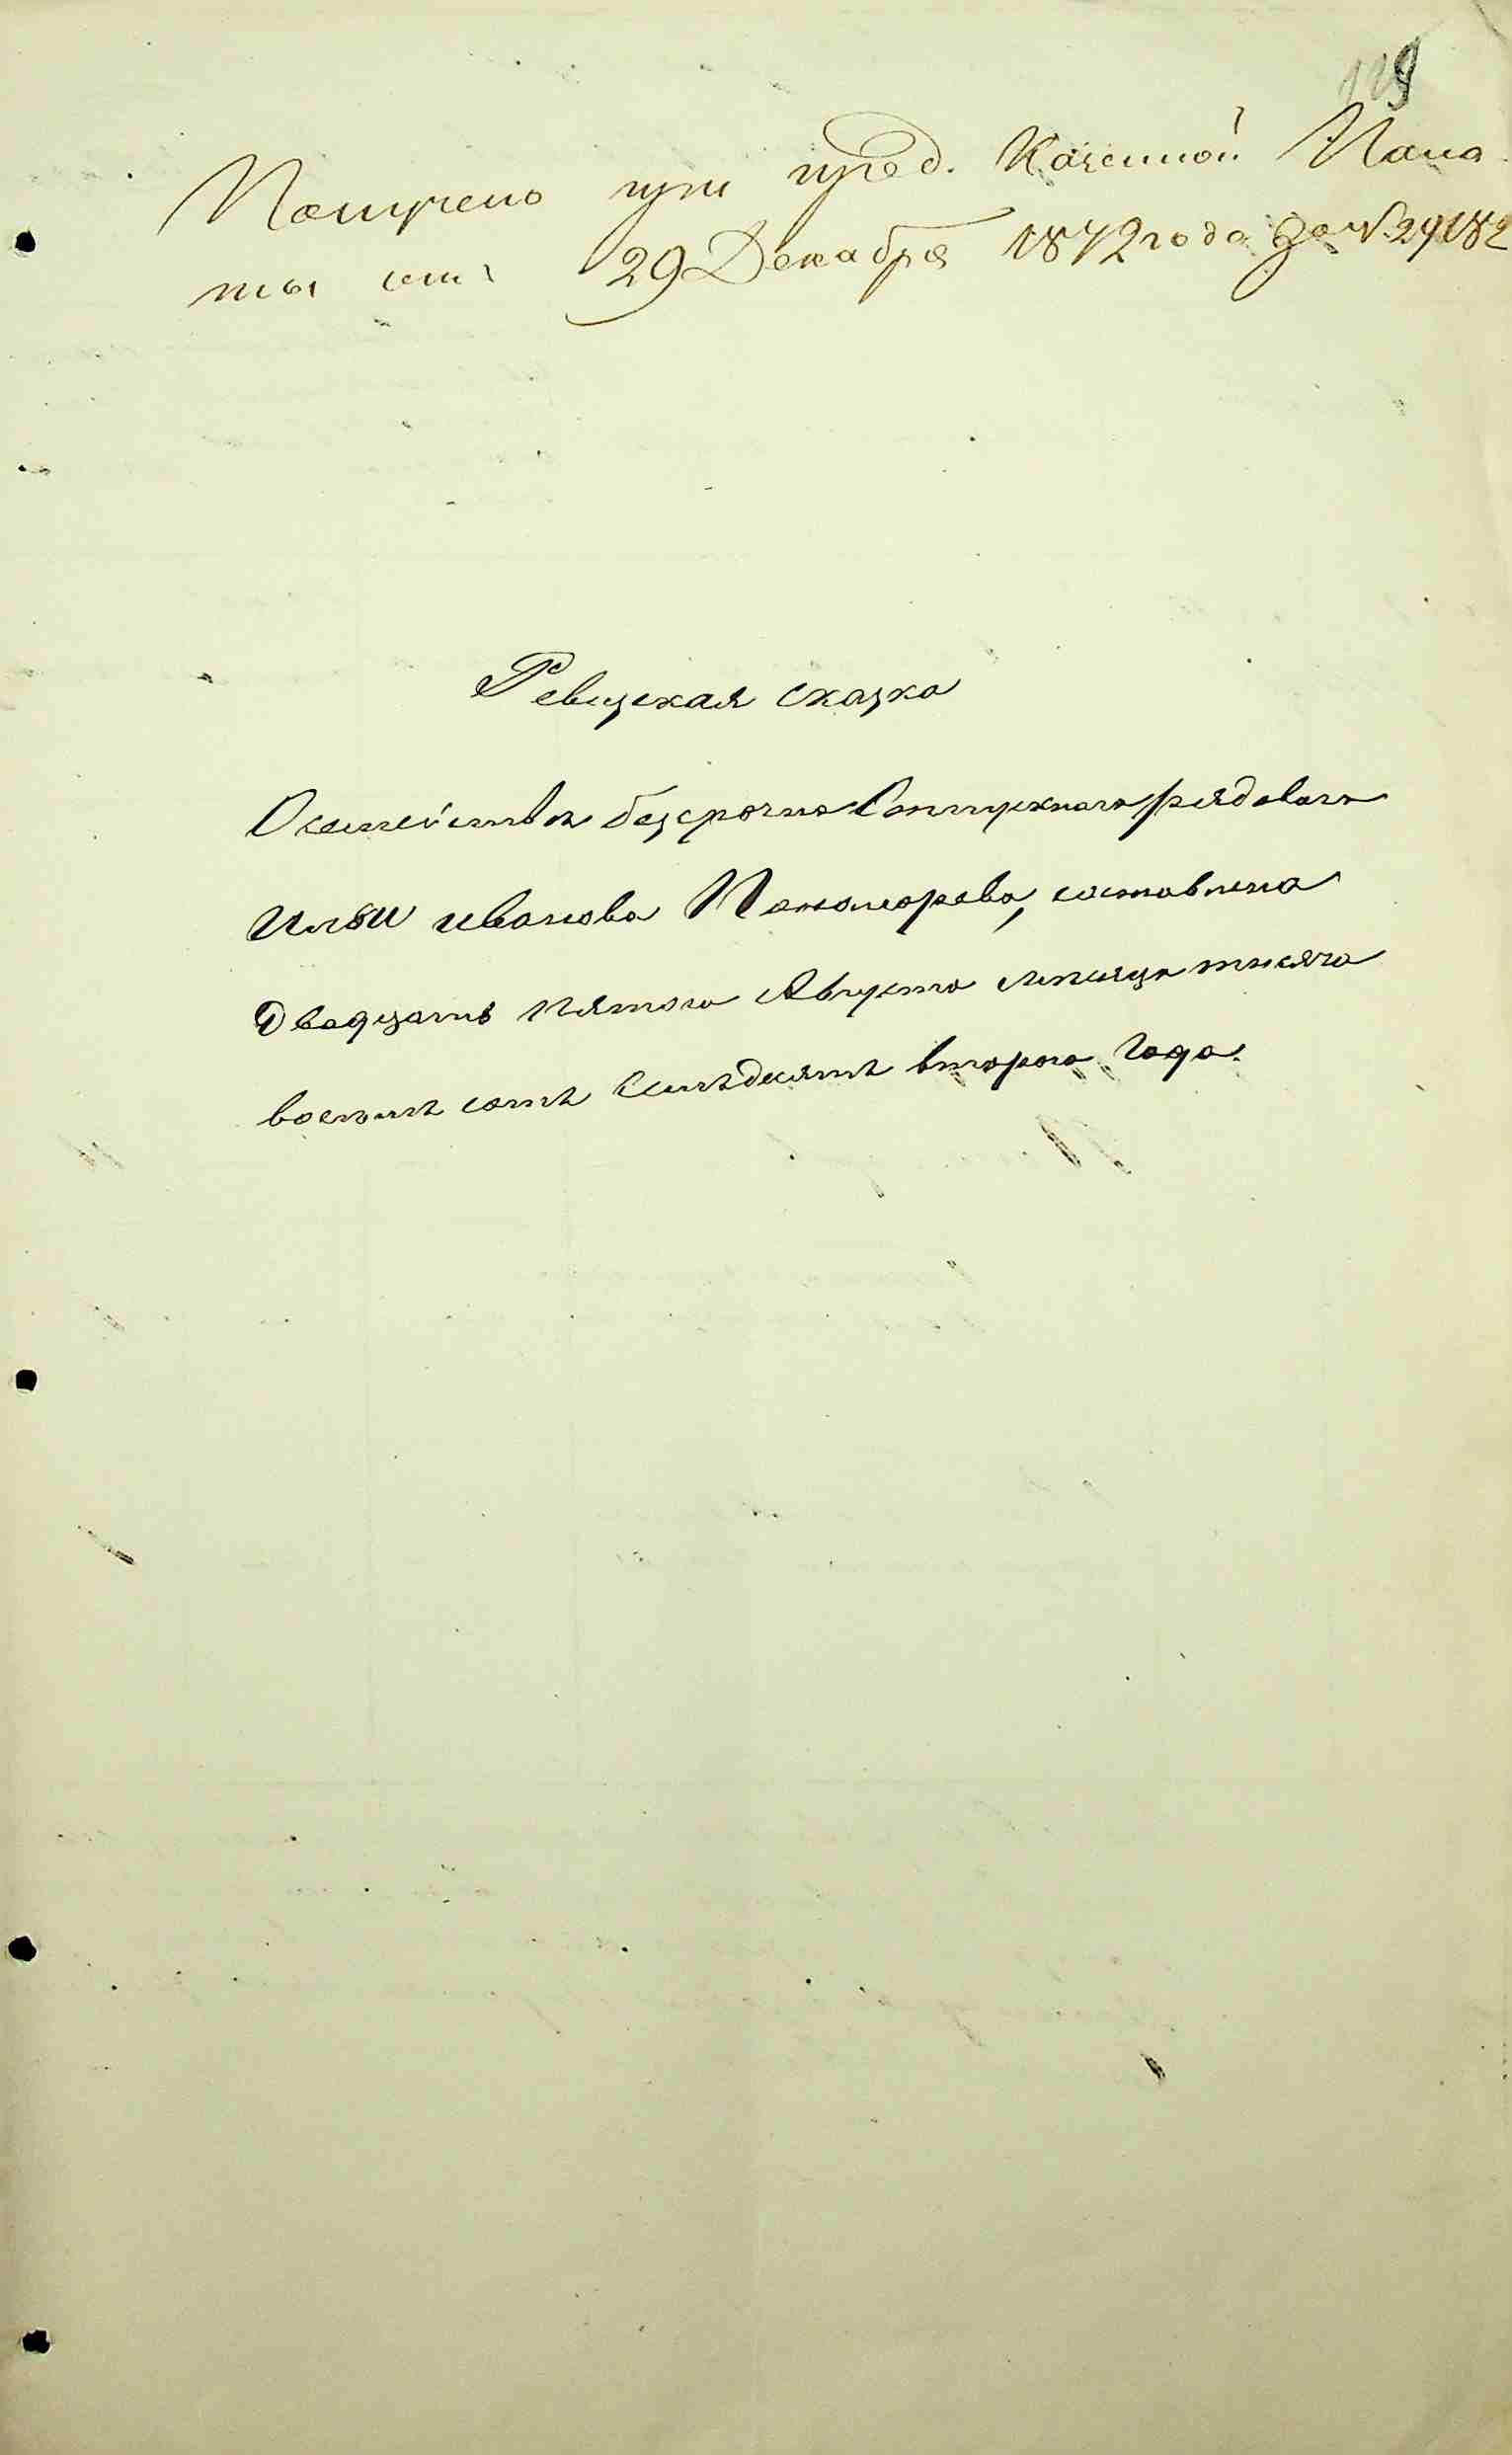 129
Получено при пред. Казенной Пала
ты отъ 29 Декабря 1872 года за № 29182
Ревизская сказка
О семействѣ безсрочно Отпускнаго рядоваго
Ильи иванова Пономарева, составлена
Двадцать пятого Августа месяца тысяча
восемъ сотъ Семъдесятъ второго Года.